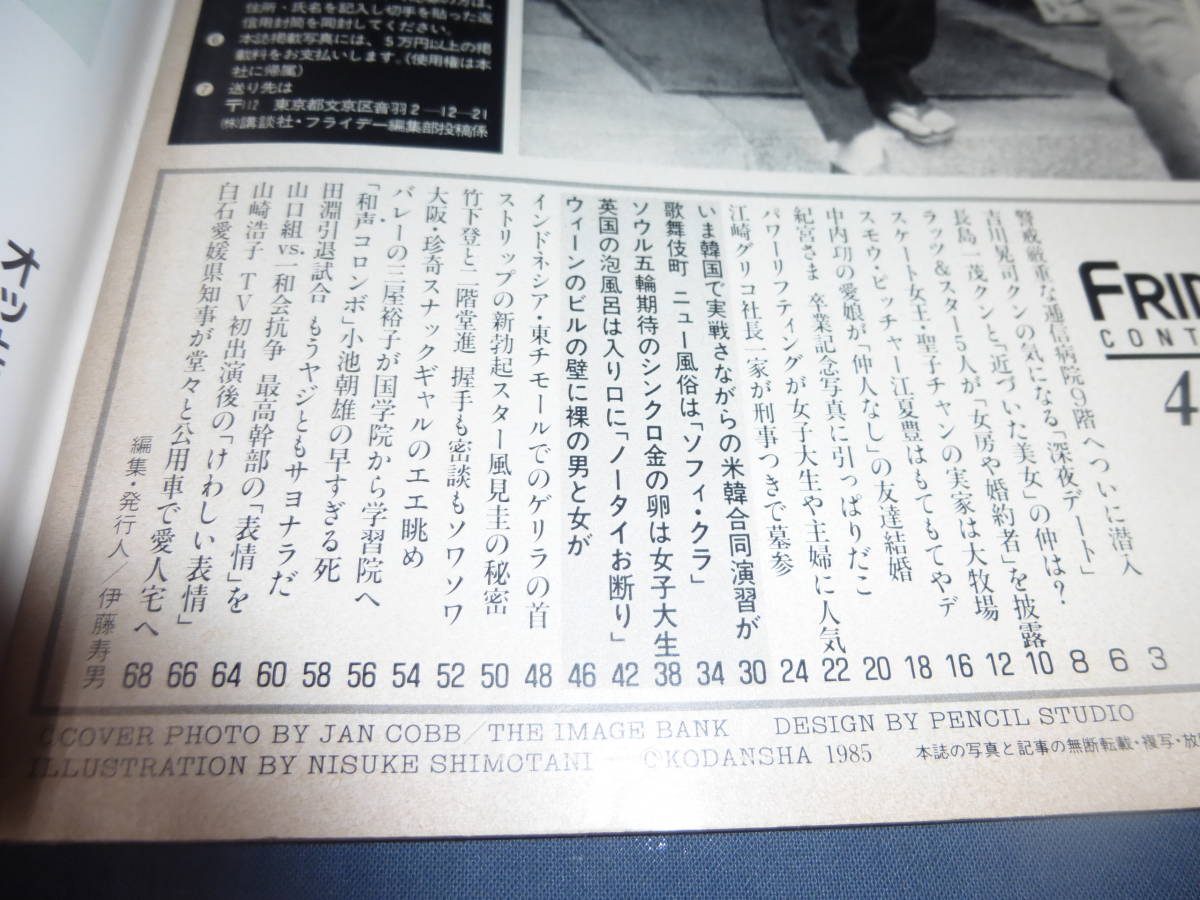 は、
住所・氏名を記入し切手を貼った返
信用封筒を同封してください。
❻ 本誌掲載写真には、5万円以上の掲
載料をお支払いします。(使用権は本
社に帰属)
❼ 送り先は
〒112 東京都文京区音羽2—12—21
㈱講談社・フライデー編集部投稿係
FRID
CONT
4
警戒厳重な逓信病院9階へついに潜入 3
吉川晃司クンの気になる「深夜デート」 6
長島一茂クンと「近づいた美女」の仲は? 8
ラッツ&スター5人が「女房や婚約者」を披露 10
スケート女王・聖子チャンの実家は大牧場 12
スモウ・ピッチャー江夏豊はもてもてやデ 16
中内功の愛娘が「仲人なし」の友達結婚 18
紀宮さま 卒業記念写真に引っぱりだこ 20
パワーリフティングが女子大生や主婦に人気 22
江崎グリコ社長一家が刑事つきで墓参 24
いま韓国で実戦さながらの米韓合同演習が 30
歌舞伎町 ニュー風俗は「ソフィ・クラ」 34
ソウル五輪期待のシンクロ金の卵は女子大生 38
英国の泡風呂は入り口に「ノータイお断り」 42
ウィーンのビルの壁に裸の男と女が 46
インドネシア・東チモールでのゲリラの首 48
ストリップの新勃起スター風見圭の秘密 50
竹下登と二階堂進 握手も密談もソワソワ 52
大阪・珍奇スナックギャルのエエ眺め 54
バレーの三屋裕子が国学院から学習院へ 56
「和声コロンボ」小池朝雄の早すぎる死 58
田淵引退試合 もうヤジともサヨナラだ 60
山口組vs.一和会抗争 最高幹部の「表情」を 64
山崎浩子 TV初出演後の「けわしい表情」 66
白石愛媛県知事が堂々と公用車で愛人宅へ 68
編集・発行人/伊藤寿男
©COVER PHOTO BY JAN COBB/THE IMAGE BANK DESIGN BY PENCIL STUDIO
ILLUSTRATION BY NISUKE SHIMOTANI ©KODANSHA 1985 本誌の写真と記事の無断転載・複写・放